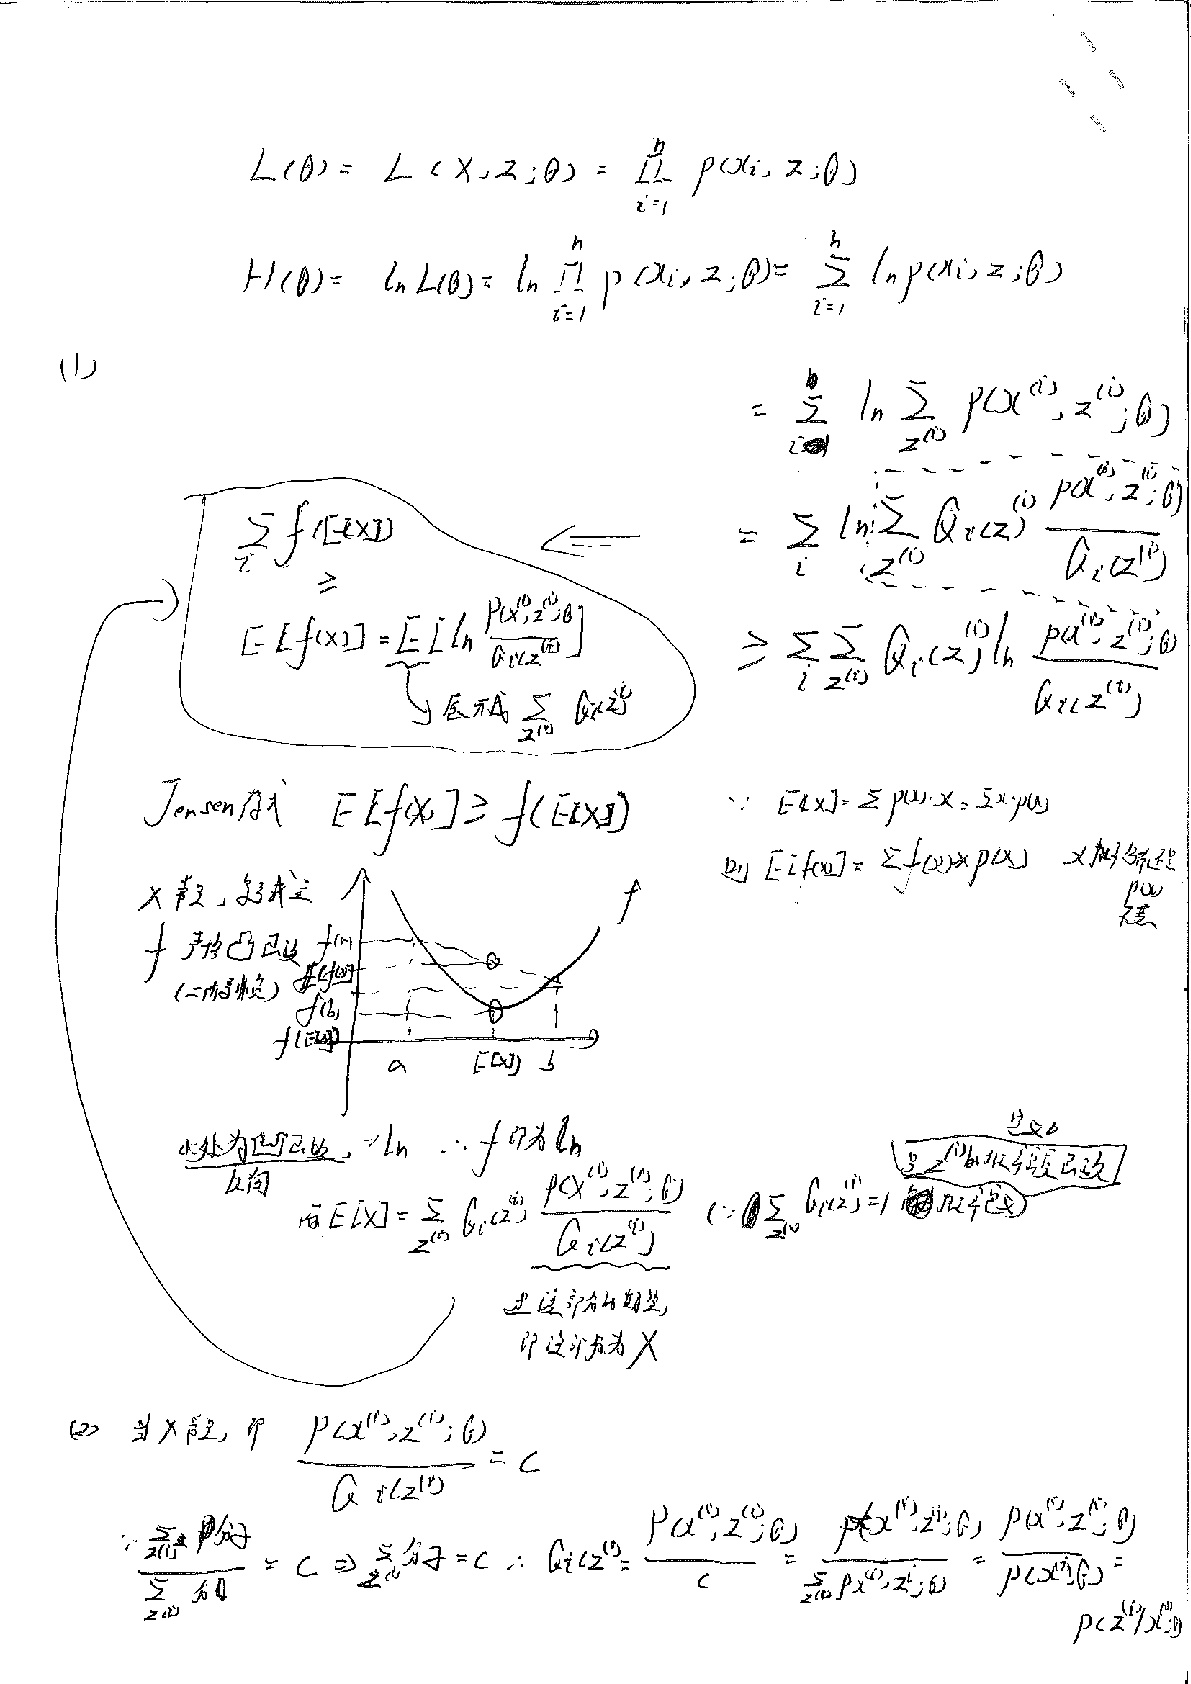 L(θ) = L(X, z; θ) = ∏_{i=1}^{n} p(xi, z; θ)
H(θ) = ln L(θ) = ln ∏_{i=1}^{n} p(xi, z; θ) = ∑_{i=1}^{n} ln p(xi, z; θ)
(1)
= ∑_{i=1}^{n} ln ∑_{z^{(i)}} p(x^{(i)}, z^{(i)}; θ)
= ∑_{i} ln ∑_{z^{(i)}} Qi(z)^{(i)} \frac{p(x^{(i)}, z^{(i)}; θ)}{Qi(z^{(i)})}
≥ ∑_{i} ∑_{z^{(i)}} Qi(z)^{(i)} ln \frac{p(x^{(i)}, z^{(i)}; θ)}{Qi(z^{(i)})}
∑_{i} f(E[X])
≥
E[f(X)] = E[ln \frac{p(x^{(i)}, z^{(i)}; θ)}{Qi(z^{(i)})}]
展开成 ∑_{z^{(i)}} Qi(z)^{(i)}
Jensen E[f(X)] ≥ f(E[X])
∵ E[X] = ∑ p(x)·x = ∑x·p(x)
则 E[f(x)] = ∑ f(x)×p(x)
p(x)
不变
X 常数, 等号成立
f 严格凸函数
f
f(a)
E[f(x)]
f(b)
f(E[x])
a E[X] b
此处为凹函数, ∵ ln ∴ f 即为 ln
反向
而 E[X] = ∑_{z^{(i)}} Qi(z)^{(i)} \frac{p(x^{(i)}, z^{(i)}; θ)}{Qi(z^{(i)})} (∵ ∑_{z^{(i)}} Qi(z)^{(i)} = 1
z^{(i)}的
是这部分的期望,
即这部分为 X
(2) 当 X 常数, 即 \frac{p(x^{(i)}, z^{(i)}; θ)}{Qi(z^{(i)})} = c
∵ \frac{∑_{z^{(i)}} 分子}{∑_{z^{(i)}} 分母} = c ⇒ ∑_{z^{(i)}} 分子 = c ∴ Qi(z^{(i)}) = \frac{p(x^{(i)}, z^{(i)}; θ)}{c} = \frac{p(x^{(i)}, z^{(i)}; θ)}{∑_{z^{(i)}} p(x^{(i)}, z^{i}; θ)} = \frac{p(x^{(i)}, z^{(i)}; θ)}{p(x^{(i)}; θ)} =
p(z^{(i)}|x^{(i)}; θ)